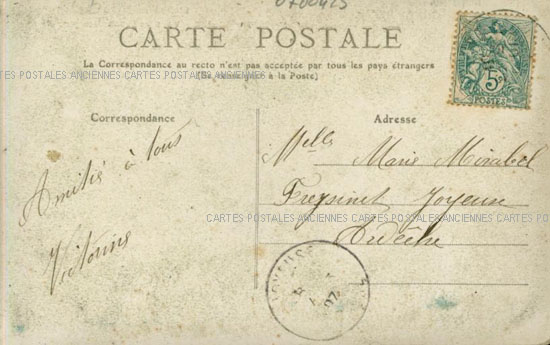 0700425
CARTE POSTALE
La Correspondance au recto n'est pas acceptée par tous les pays étrangers
(Se renseigner à la Poste)
CARTES POSTALES ANCIENNES CARTES POSTALES ANCIENNES CARTES POSTALES ANCIENNES CARTES POSTALES
5c
POSTES
Correspondance
Amitié à tous
Victorine
Adresse
Melle Marie Mirabel
Freyssinet Joyeuse
Ardèche
CARTES POSTALES ANCIENNES CARTES POSTALES ANCIENNES CARTES POS
JOYEUSE